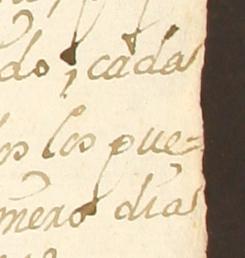 do; cada
os los pue=
mero dia